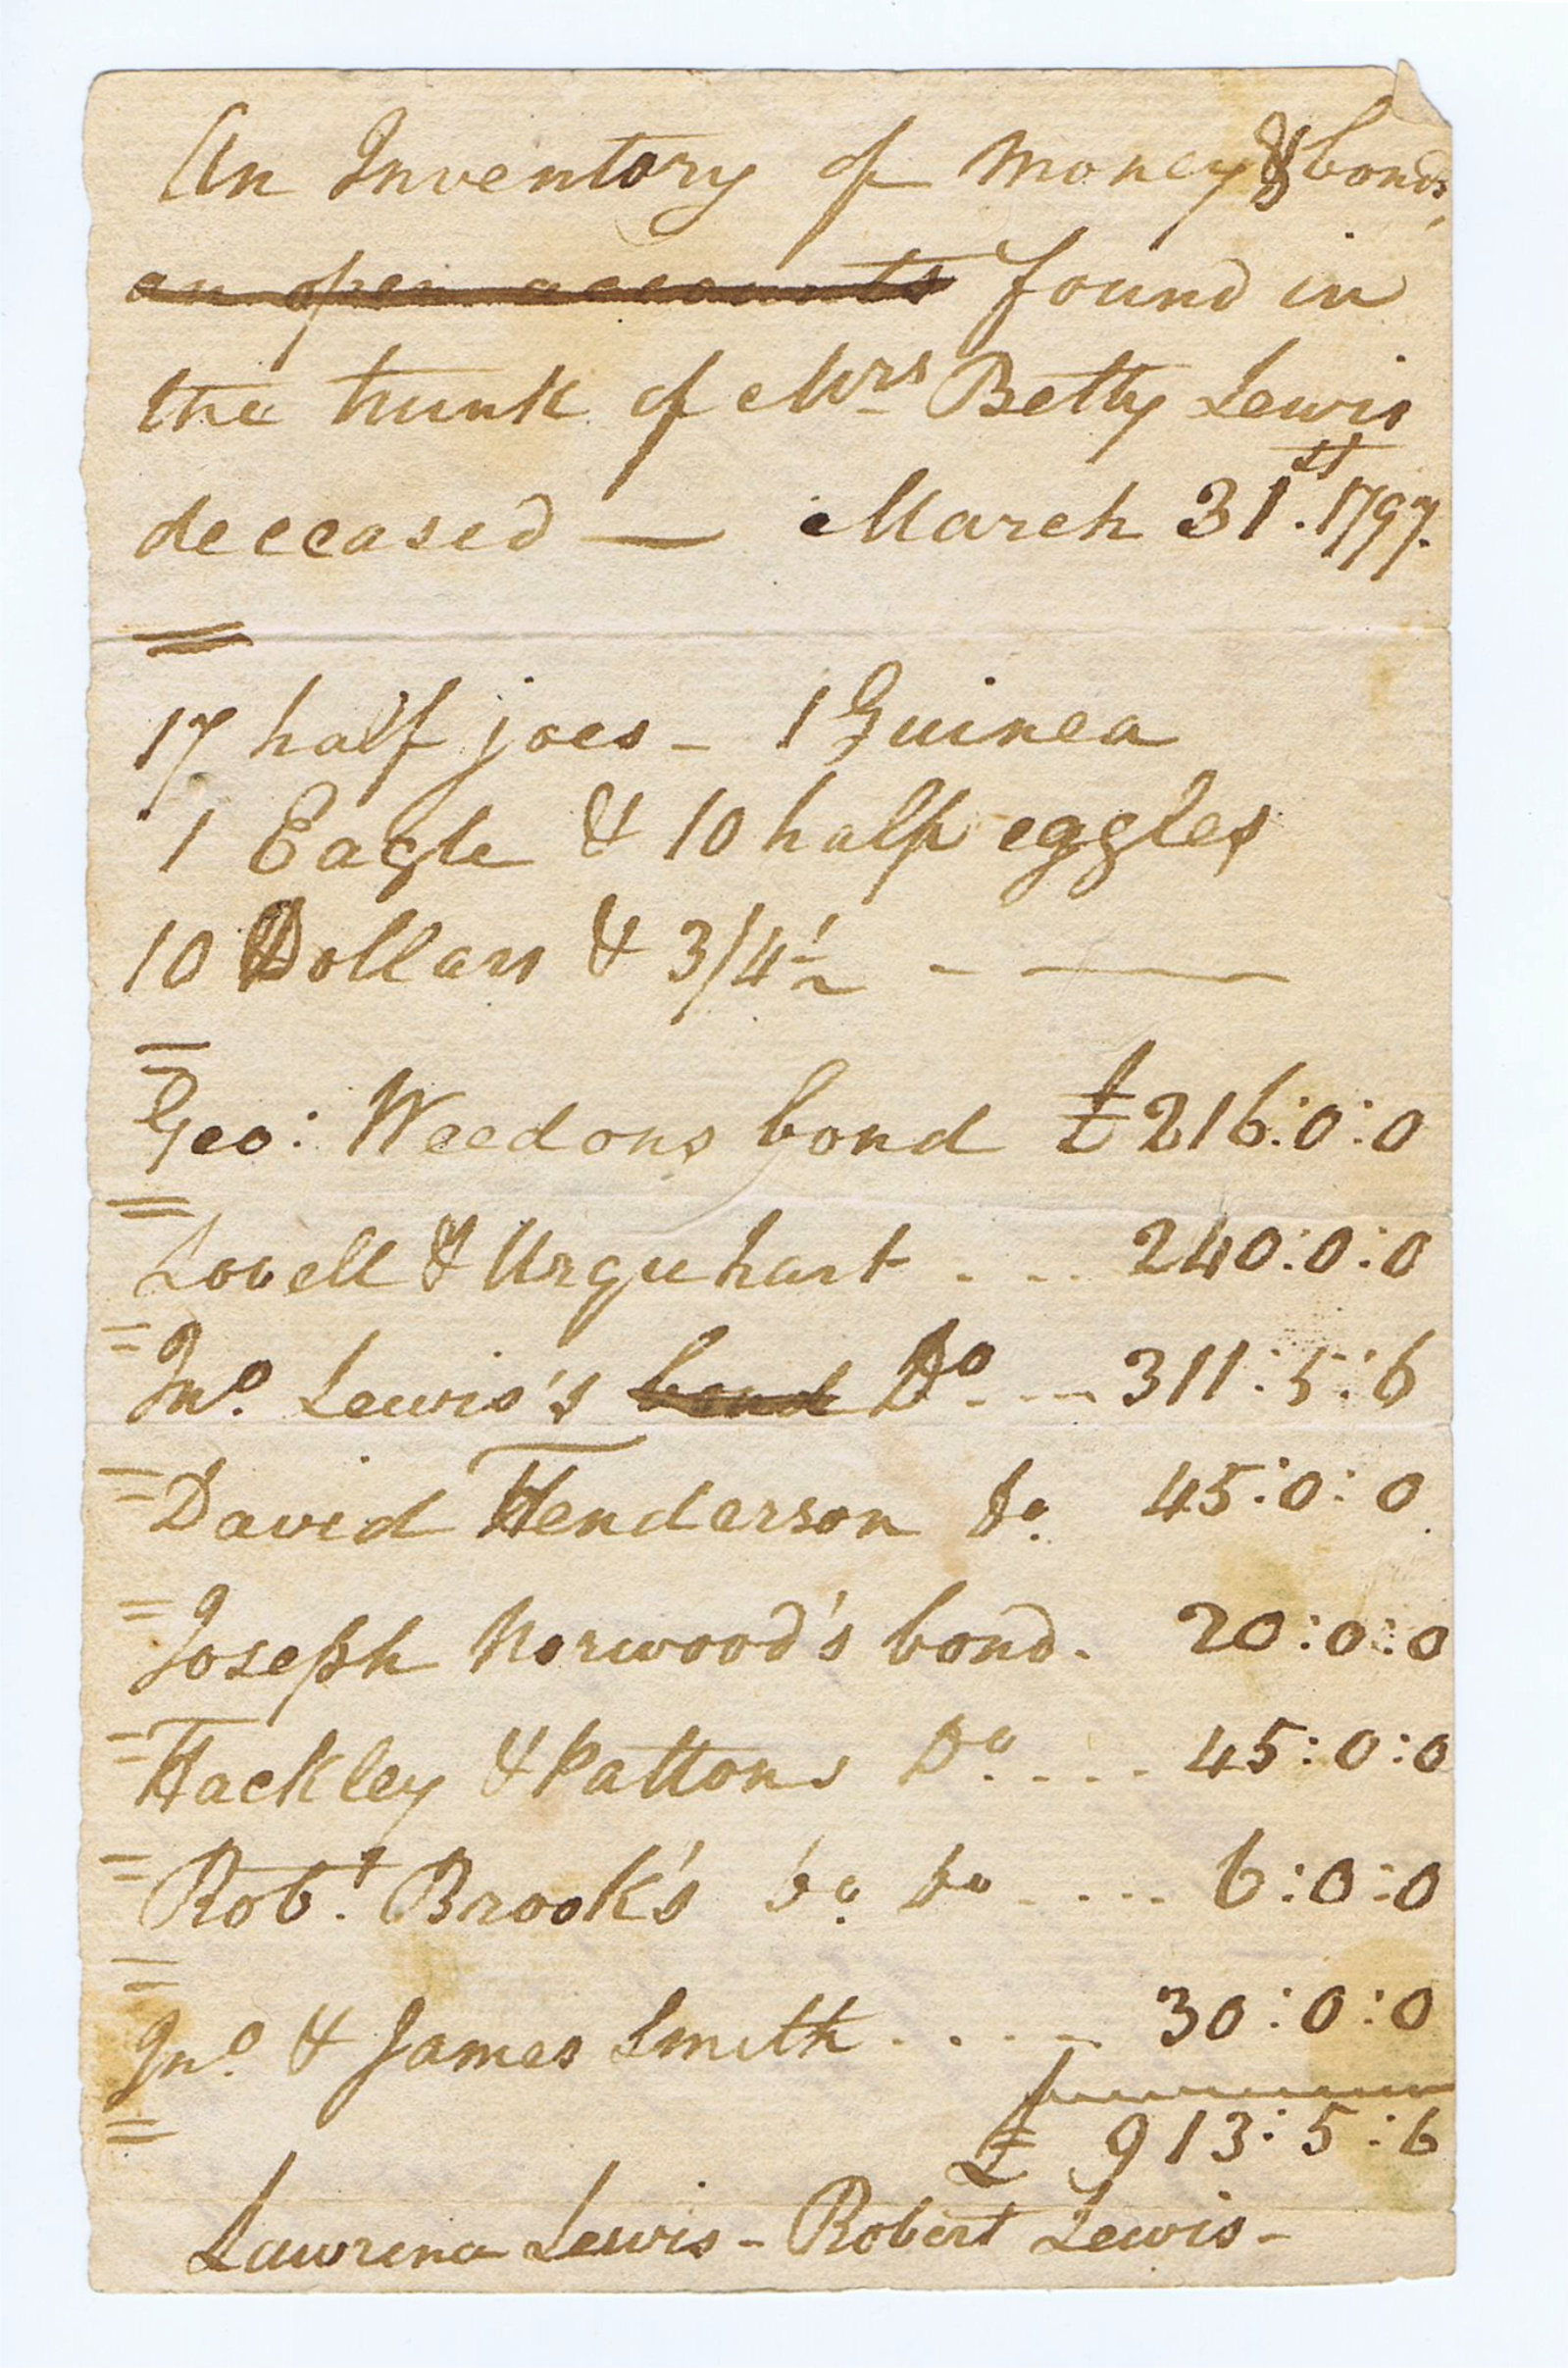 An Inventory of money & bonds,
an open accounts found in
the trunk of Mrs Betty Lewis
deceased — March 31st. 1797.
17 half joes - 1 Guinea
1 Eagle & 10 half eggles
10 Dollars & 3/4½ - —
Geo: Weedons bond £216:0:0
Lovell & Urquhart . . . 240:0:0
Jno. Lewis's bond Do. -- 311:5:6
David Henderson do. 45:0:0
Joseph Norwood's bond. 20:0:0
Hackley & Pattons Do. . . . 45:0:0
Robt. Brook's do. do . . . . 6:0:0
Jno. & James Smith . . . . 30:0:0
£ 913:5:6
Lawrence Lewis - Robert Lewis -